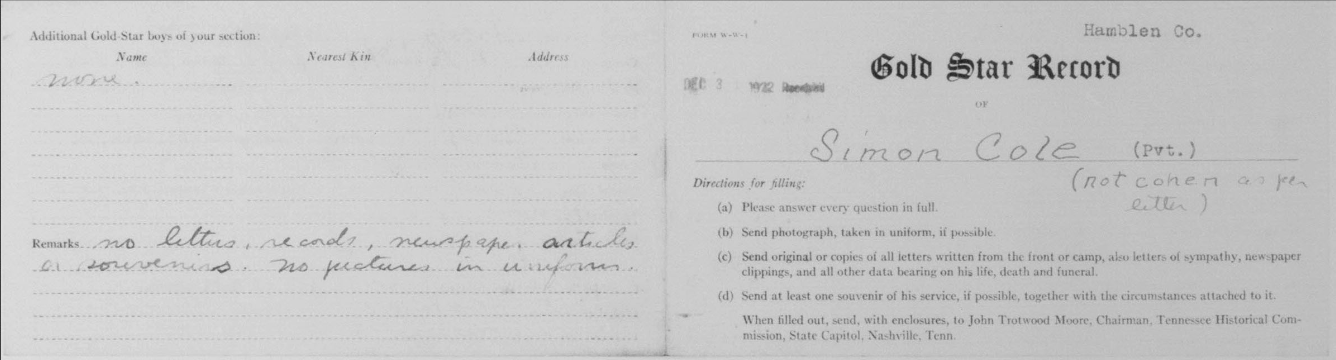 Additional Gold-Star boys of your section:
Name Nearest Kin Address
none.
Remarks no letters, records, newspaper articles
or souvenirs. no pictures in uniform.
FORM W-W-1
Hamblen Co.
Gold Star Record
DEC 3 1922 Received
OF
Simon Cole (Pvt.)
(not cohen as per
letter)
Directions for filling:
(a) Please answer every question in full.
(b) Send photograph, taken in uniform, if possible.
(c) Send original or copies of all letters written from the front or camp, also letters of sympathy, newspaper
clippings, and all other data bearing on his life, death and funeral.
(d) Send at least one souvenir of his service, if possible, together with the circumstances attached to it.
When filled out, send, with enclosures, to John Trotwood Moore, Chairman, Tennessee Historical Com-
mission, State Capitol, Nashville, Tenn.